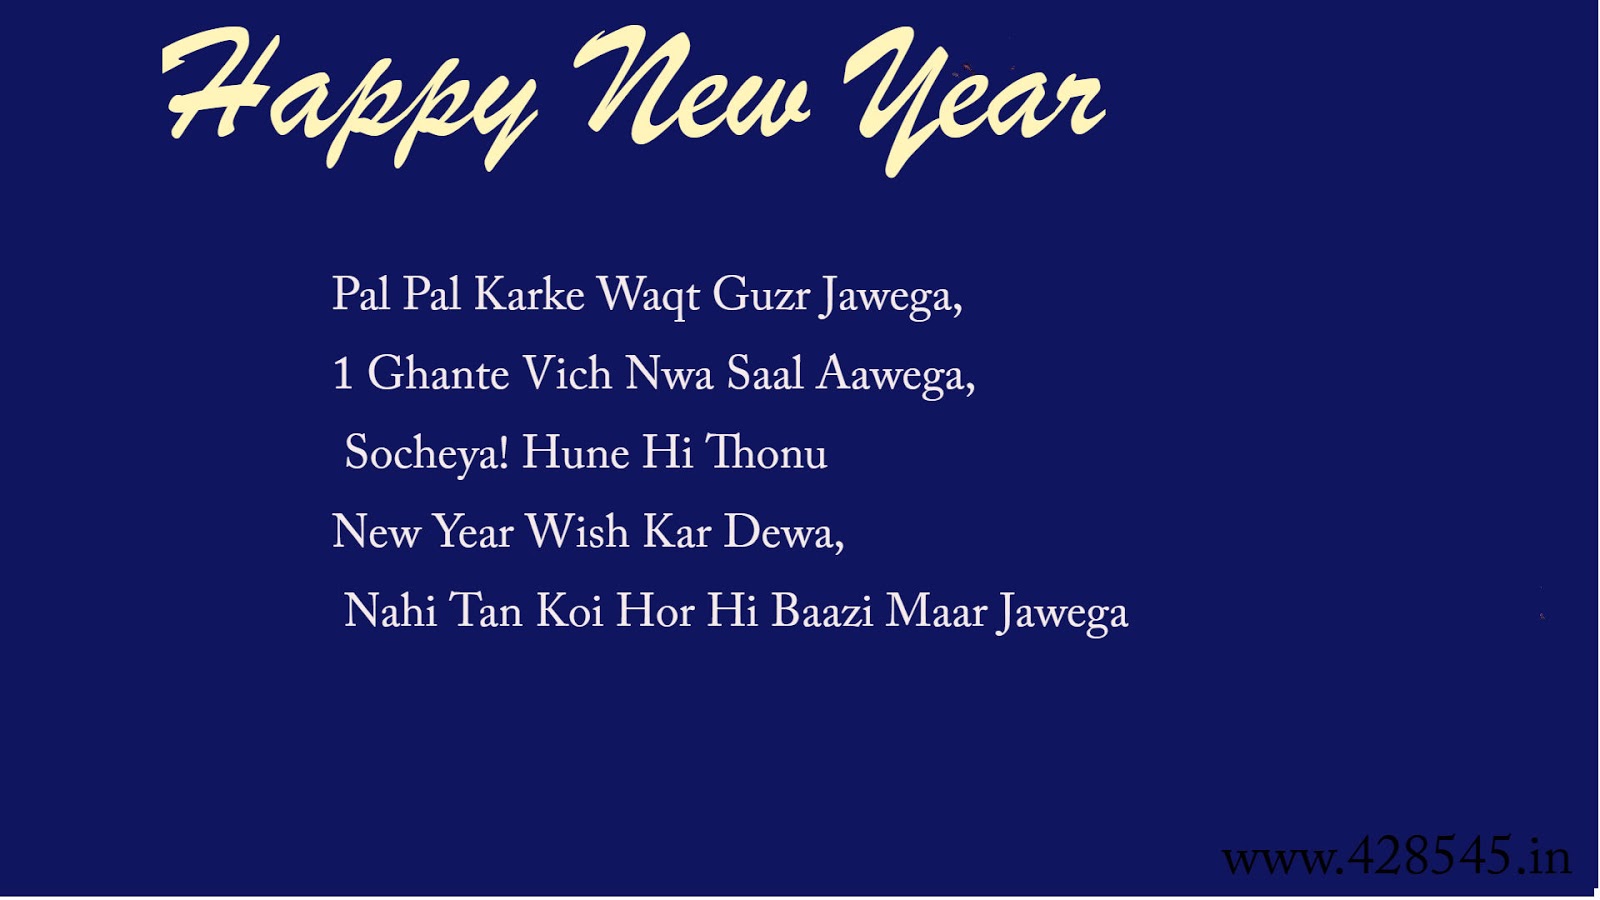 Happy New Year
Pal Pal Karke Waqt Guzr Jawega,
1 Ghante Vich Nwa Saal Aawega,
Socheya! Hune Hi Thonu
New Year Wish Kar Dewa,
Nahi Tan Koi Hor Hi Baazi Maar Jawega
www.428545.in